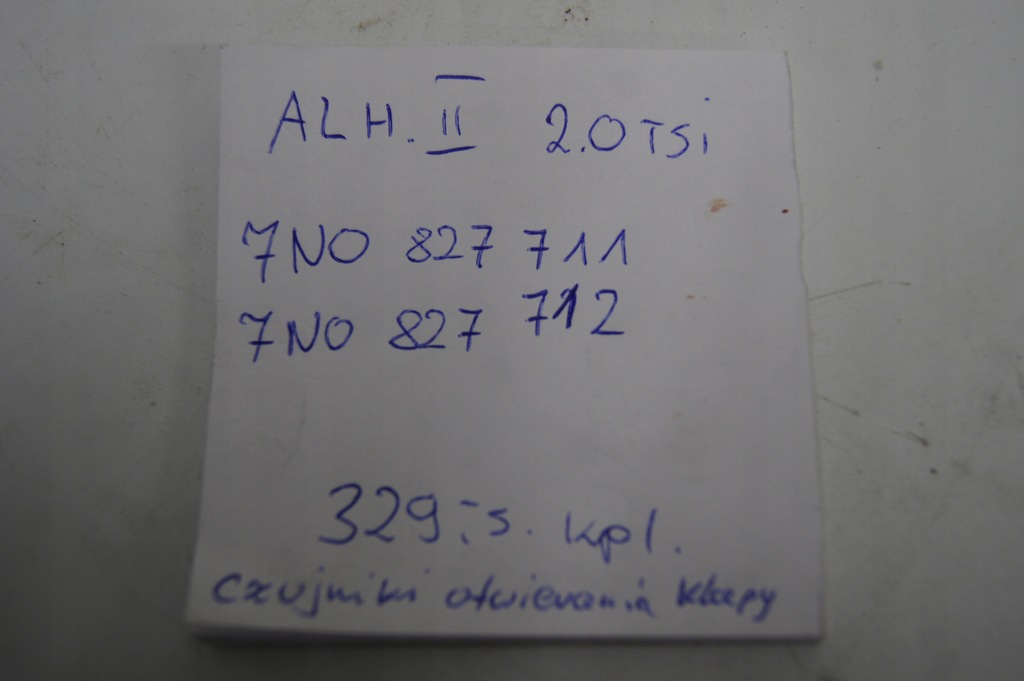 ALH. II 2.0 TSi
7NO 827 711
7NO 827 712
329,-s. kpl.
czujniki otwierania klapy